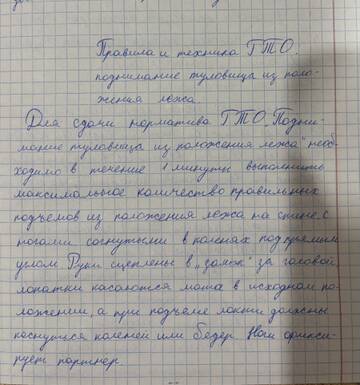 Правила и техника ГТО.
поднимание туловищы из поло-
жения лежа.
Для сдачи норматива ГТО „Подни-
мание туловищы из положения лежа" необ-
ходимо в течение 1 минуты выполнить
максимальное количество правильных
подъемов из положения лежа на спине, с
ногами согнутыми в коленях под прямым
углом. Руки сцеплены в „замок" за головой
лопатки касаются мата в исходном по-
ложении, а при подъеме локти должны
коснуться коленей или бедер. Ноги фикси-
рует партнер.